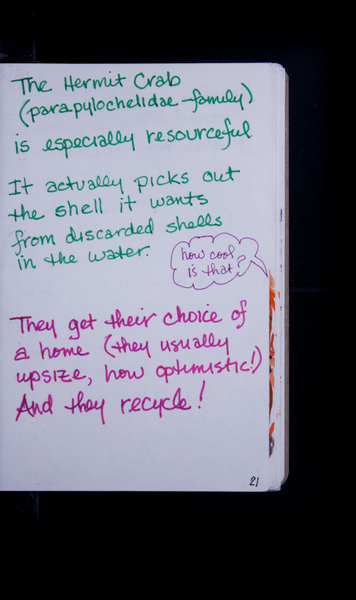 The Hermit Crab
(parapylochelidae family)
is especially resourceful.
It actually picks out
the shell it wants
from discarded shells
in the water.
how cool
is that?
They get their choice of
a home (they usually
upsize, how optimistic!)
And they recycle!
21